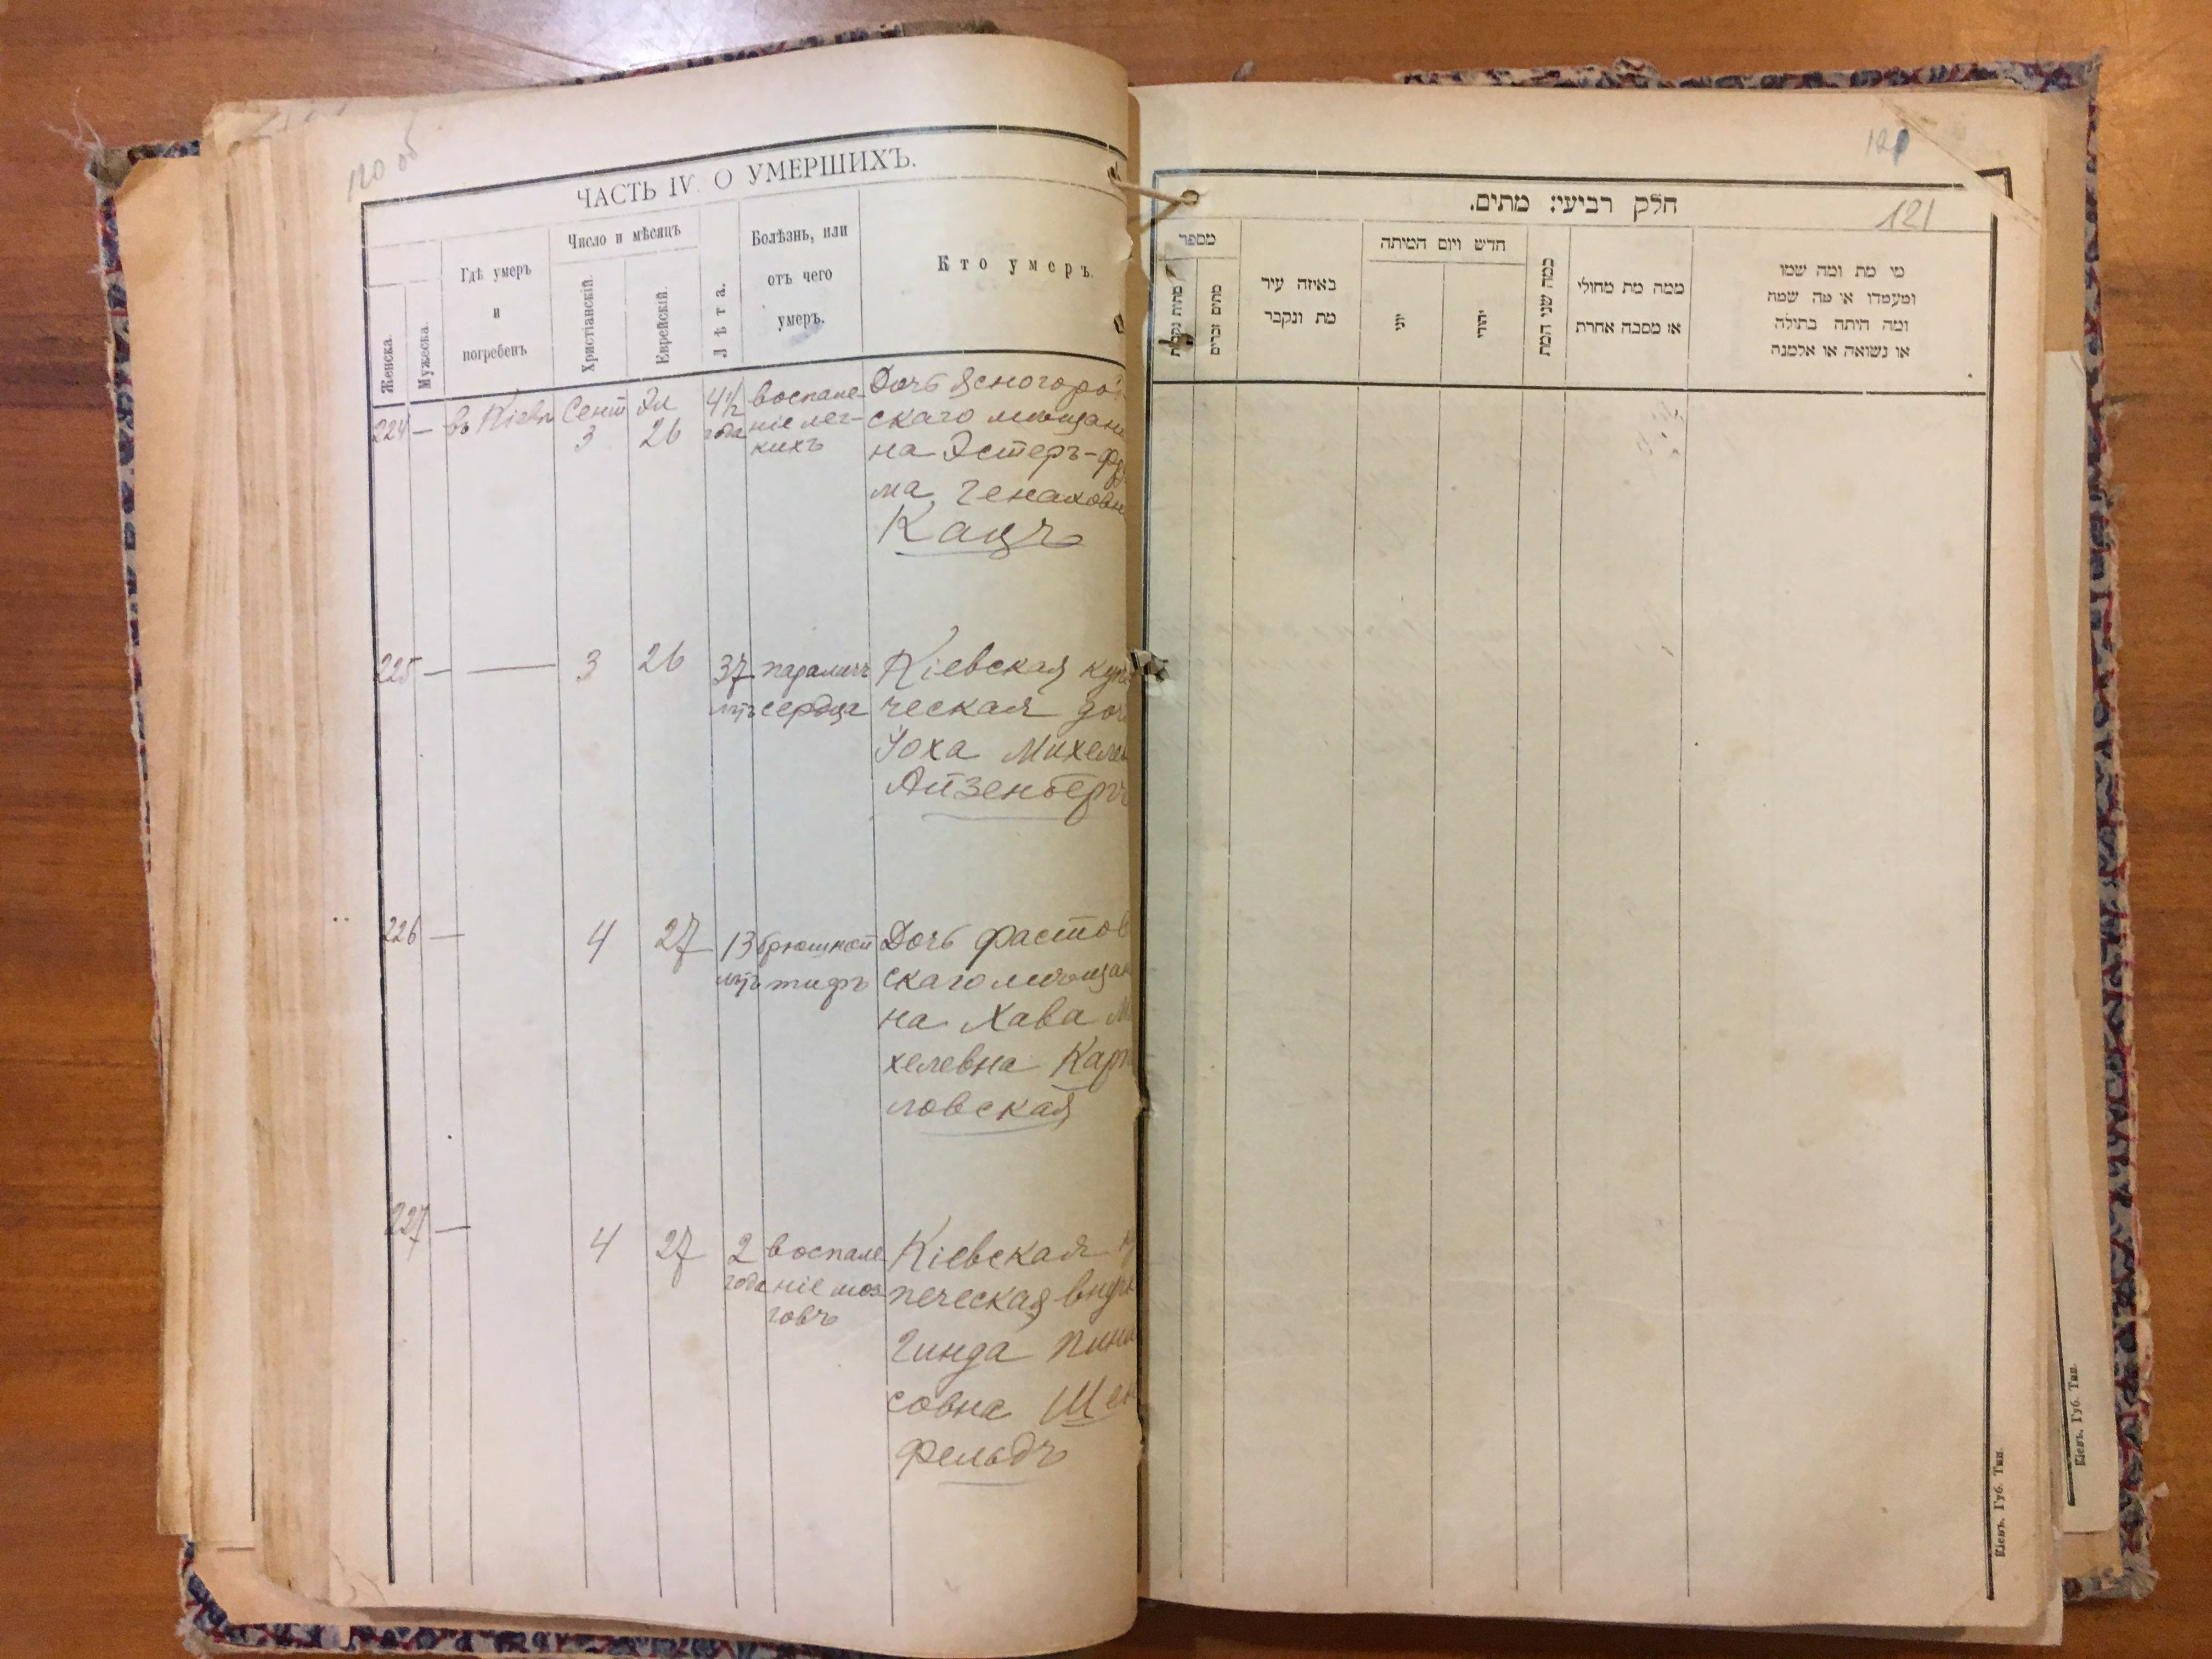 120 об
ЧАСТЬ IV. О УМЕРШИХЪ.
Женска.
Мужеска.
Гдѣ умеръ
и
погребенъ
Число и мѣсяцъ
Христіанскій.
Еврейскій.
Лѣта.
Болѣзнь, или
отъ чего
умеръ.
Кто умеръ.
224 — въ Кіевѣ Сент 3 Эл 26 4½ года
воспале-
ніе лег-
кихъ
Дочь Ясногород
скаго мѣщани
на Эстеръ-
ма Генахов
Кацъ
225 — — 3 26 37 лѣтъ
параличъ
сердца
Кіевская куп
ческая доч
Іоха Михеле
Айзенбергъ
226 — 4 27 13 лѣтъ
брюшной
тифъ
Дочь фастов
скаго мѣщан
на Хава М
хелевна Кар
ловская
227 — 4 27 2 года
воспале
ніе моз
говъ
Кіевская к
печеская внучк
Гинда Пин
совна Ше
фельдъ
121
חלק רביעי: מתים.
121
מספר
מתות נקבות
מתים זכרים
באיזה עיר
מת ונקבר
חדש ויום המיתה
יוני
יהודי
כמה שני המת
ממה מת מחולי
או מסבה אחרת
מי מת ומה שמו
ומעמדו או מה שמת
ומה היתה בתולה
או נשואה או אלמנה
Кіевъ. Губ. Тип.
Кіевъ. Губ. Тип.